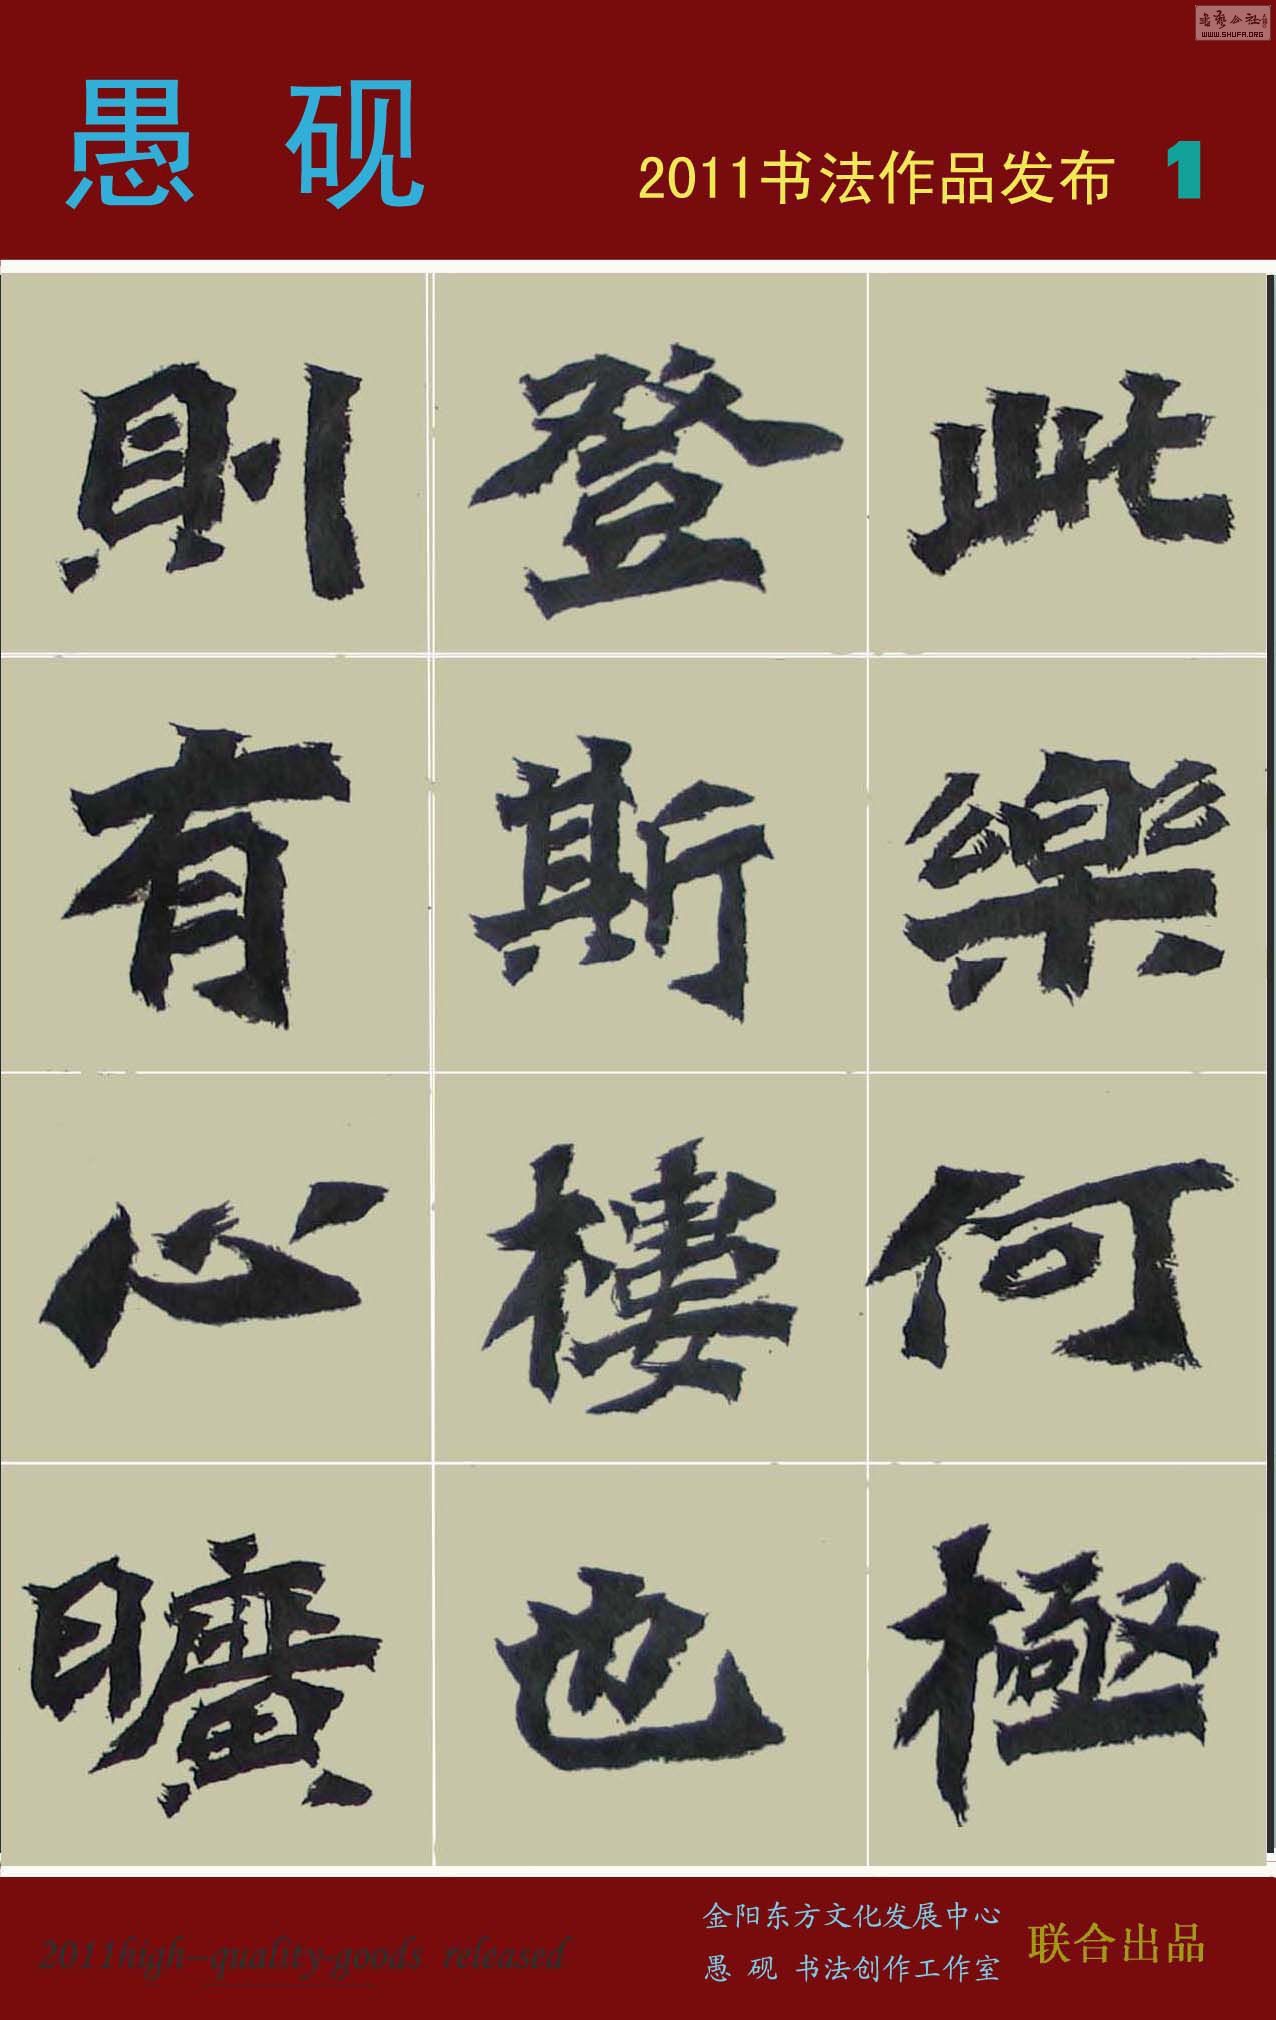 书艺公社
WWW.SHUFA.ORG
愚 砚
2011书法作品发布 1
此樂何極
登斯樓也
則有心曠
2011high-quality-goods released
金阳东方文化发展中心
愚 砚 书法创作工作室
联合出品